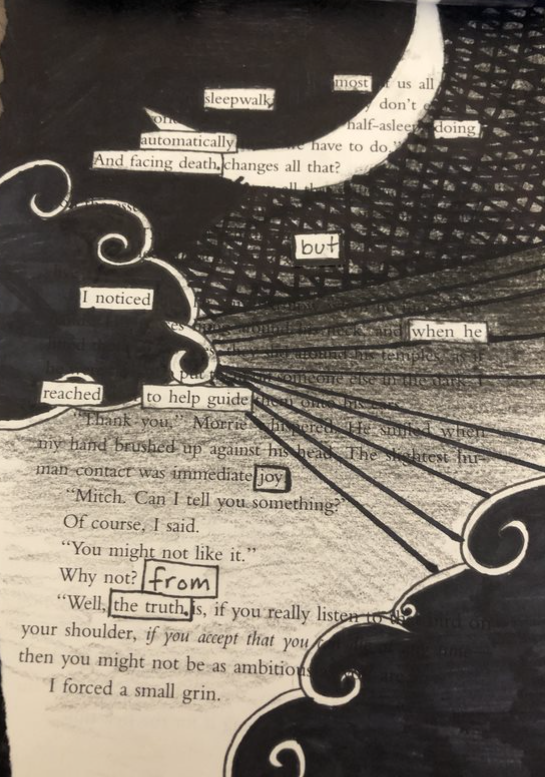 most us all
sleepwalk. don't
half-asleep, doing
automatically have to do."
And facing death, changes all that?
but
I noticed
around his neck, and when he
around his temples, as if
someone else in the dark. I
reached to help guide them onto his
"Thank you," Morrie whispered. He smiled when
my hand brushed up against his head. The slightest hu-
man contact was immediate joy.
"Mitch. Can I tell you something?"
Of course, I said.
"You might not like it."
Why not? from
"Well, the truth. is, if you really listen to that bird on
your shoulder, if you accept that you
then you might not be as ambitious
I forced a small grin.